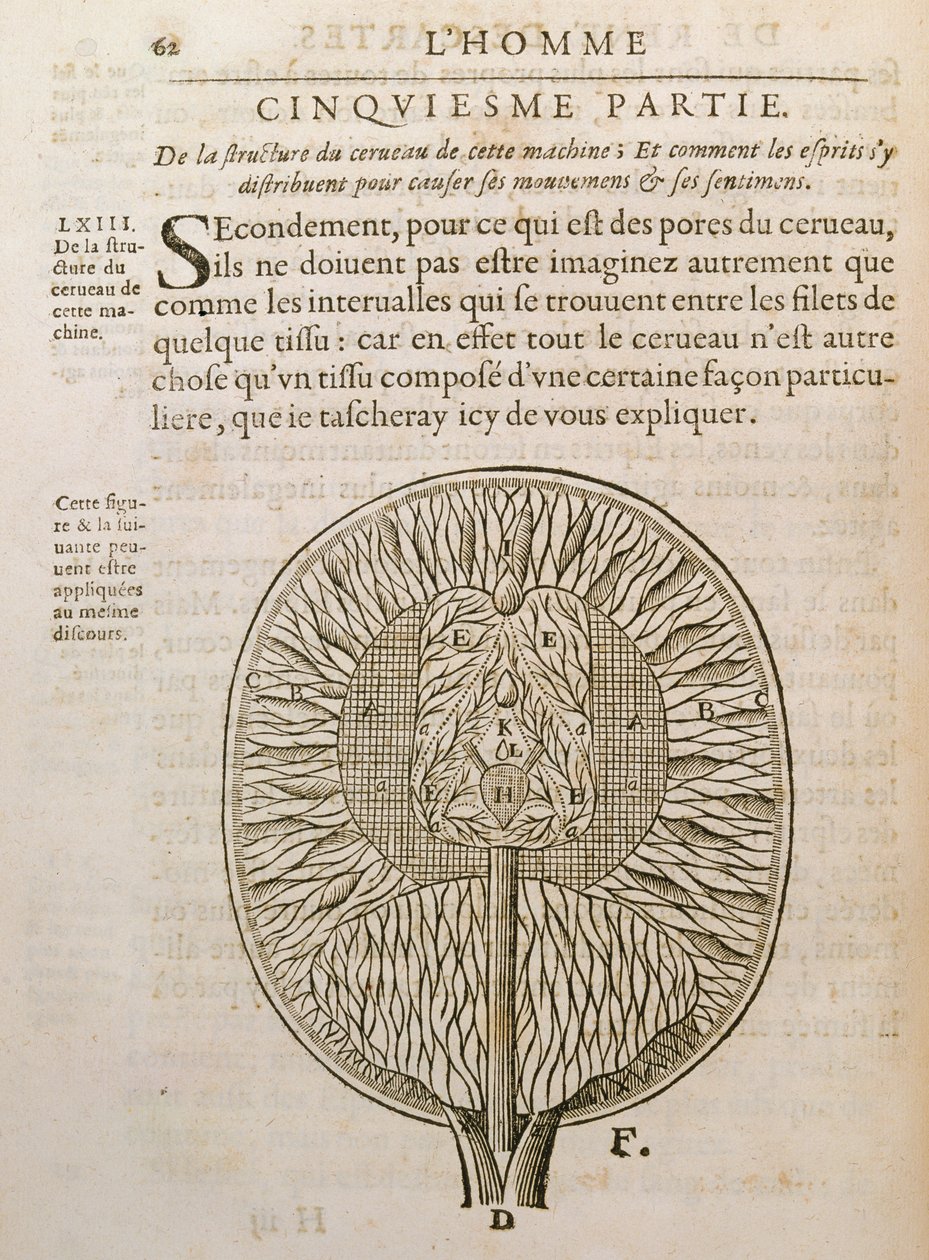 62 L'HOMME
CINQVIESME PARTIE.
De la ſtructure du cerueau de cette machine; Et comment les eſprits s'y
diſtribuent pour cauſer ſes mouuemens & ſes ſentimens.
LXIII.
De la ſtru-
cture du
cerueau de
cette ma-
chine.
SEcondement, pour ce qui eſt des pores du cerueau,
ils ne doiuent pas eſtre imaginez autrement que
comme les interualles qui ſe trouuent entre les filets de
quelque tiſſu : car en effet tout le cerueau n'eſt autre
choſe qu'vn tiſſu compoſé d'vne certaine façon particu-
liere, que ie taſcheray icy de vous expliquer.
Cette figu-
re & la ſui-
uante peu-
uent eſtre
appliquées
au meſme
diſcours.
I
E E
C B B C
A A
K
a a
L
a a
E H E
a
F.
D